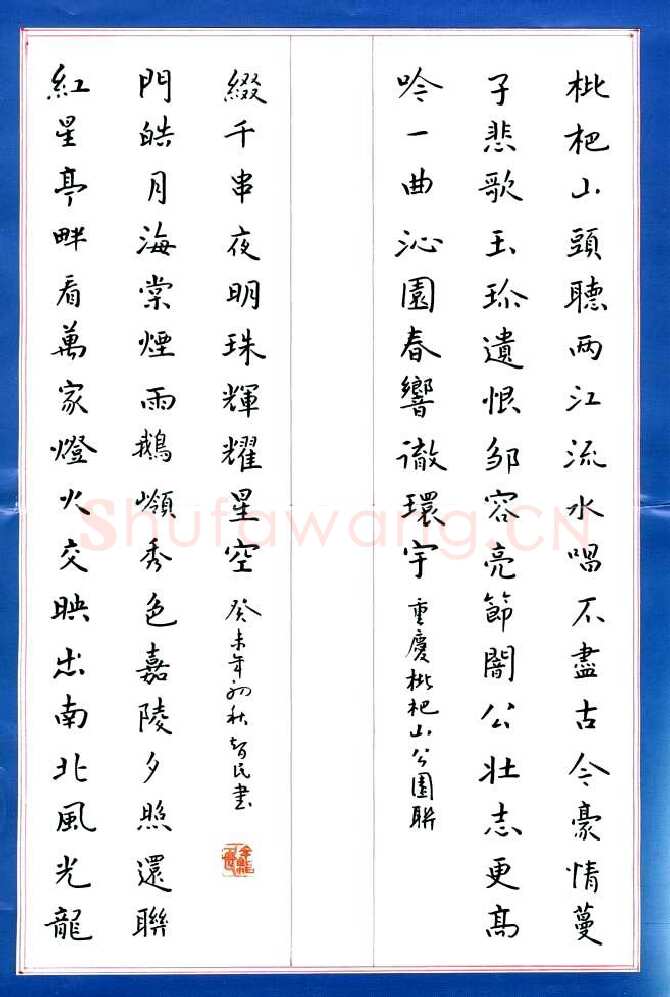 枇杷山頭聽两江流水唱不盡古今豪情蔓
子悲歌玉珍遺恨邹容亮節闇公壯志更高
吟一曲沁園春響徹環宇 重慶枇杷山公園聯
紅星亭畔看萬家燈火交映出南北風光龍
門皓月海棠煙雨鵝嶺秀色嘉陵夕照還聯
綴千串夜明珠輝耀星空 癸未年初秋智民書
Shufawang.CN